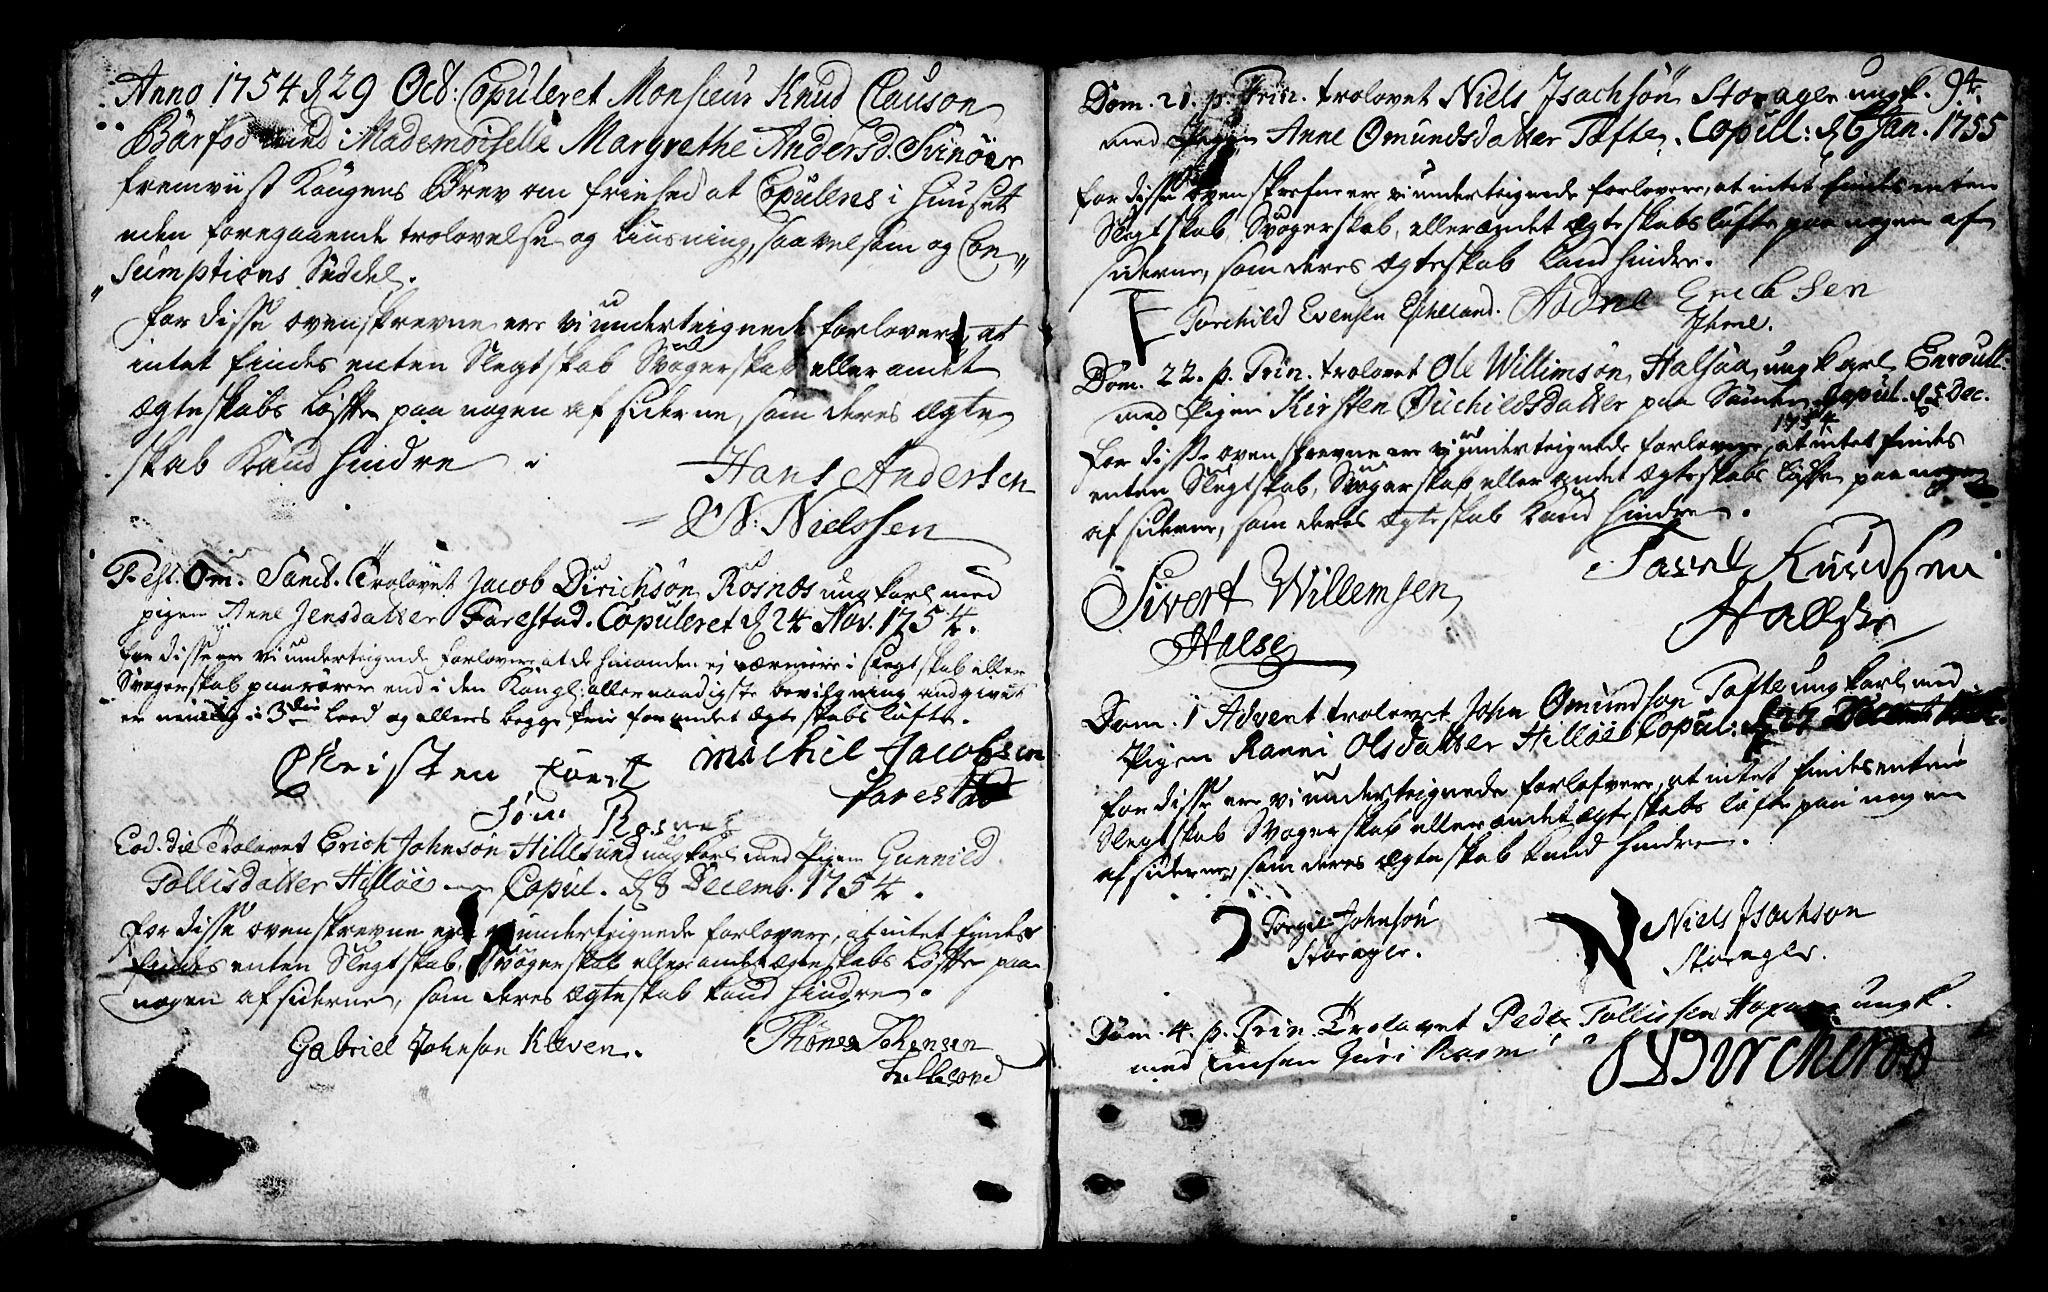 Anno 1754 d 29 Octb: Copuleret Monsieur Knud Clauson
Bärfod med Mademoiselle Margrethe Andersd.
fremviist Kongens Brev om friehed at Copuleres i Huuset
uden foregaaende trolovelse og liusning, saavelsom og Con„
„sumptions Seddel.
for disse ovenskrevne ere vi underteignede forlovere, at
intet findes enten Slegtskab Svogerskab eller andet
Ægteskabs Løfte paa nogen af siderne, som deres Ægte
skab Kand hindre
Hans Andersen
N: Nielssen
Fest. Om. Sanct. Trolovet Jacob Dirichsön Rosnæs ungkarl med
pigen Anne Jensdatter Farestad. Copuleret d 24 Nov. 1754.
for disse ere vi underteignede forlovere at de hinanden ej nærmere i slegtskab eller
Svogerskab paarörer end i den Kongl: allernaadigste bevilgning angivet
er nemlig i 3die Leed og ellers begge frie for andet Ægteskabs løfte.
Christen
Michel Jacobsen
farestad
Rosnes
Eod. die Trolovet Erich Johnsön Hillesund ungkarl med Pigen Gunnild
Tollisdatter Hilløe Copul. d 8 Decemb. 1754.
for disse ovenskrevne ere vi underteignede forlovere, at intet findes
findes enten Slegtskab, Svogerskab eller andet Ægteskabs Løfte paa
nogen af siderne, som deres Ægteskab kand hindre.
Gabriel Johnson Kleven.
Thönes Johensen
94.
Dom. 21. p. Trin. trolovet Niels Isachsön Storager ungk.
med Pigen Anne Omundsdatter Tofte. Copull: d 6 Jan. 1755
for disse ovenskrefne ere vi underteignede forlovere, at intet findes enten
Slegtskab, Svogerskab, eller andet Ægteskabs løfte paa nogen af
siderne, som deres Ægteskab kand hindre.
Torchild Evensen Escheland. Aadne Erichsen
Dom. 22. p. Trin. trolovet Ole Willimsön Halsaa ungkarl Enroull:
med Pigen Kirsten datter paa Copul. d 5 Dec.
1754
for disse ovenskrevne ere vi underteignede forlovere, at intet findes
enten Slegtskab, Svogerskab eller andet Ægteskabs Løfte paa nogen
af siderne, som deres Ægteskab Kand hindre.
Sivert Willemsen
Halse
Knudsen
Dom. 1 Advent trolovet John Omundson Tofte ungkarl med
Pigen Ranni Olsdatter Hilløe Copul: d 27
for disse ere vi underteignede forlofvere, at intet findes enten
Slegtskab Svogerskab eller andet Ægteskabs løfte paa nogen
af siderne, som deres Ægteskab kand hindre.
Torgie Johnsön
Storager.
Niels Isachson
Storager.
Dom. 4. p. Trin. Trolovet Peder Tollissen ungk.
med Guri